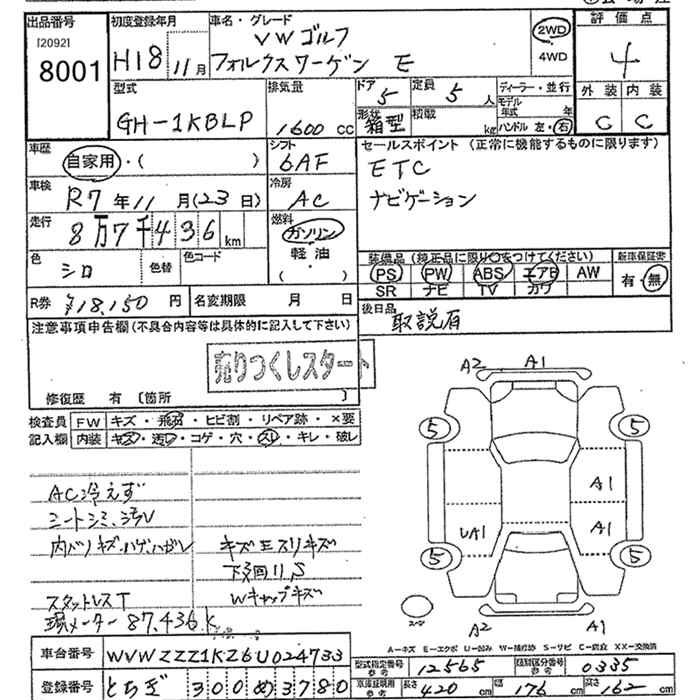 出品番号
初度登録年月
車名・グレード
評価点
(20921
8001
H18 11月
VWゴルフ
フォルクスワーゲン E
2WD
4WD
4
型式
排気量
ドア
定員
ディーラー・並行
外装 内装
GH-1KBLP
1600 cc
5
5 人
モデル年式 年
形状 箱型
積載 kg
ハンドル 左・右
C C
車歴
自家用・( )
シフト
6AF
セールスポイント (正常に機能するものに限ります)
ETC
ナビゲーション
車検
R7年11月(23日)
冷房
AC
走行
8万7千436km
燃料
ガソリン
軽油
( )
色
シロ
色替
色コード
装備品 (純正品に限り○をつけてください)
新車保証書
PS PW ABS エアB AW
SR ナビ TV カワ
有・無
R券 ¥18,150 円
名変期限 月 日
後日品
取説有
注意事項申告欄 (不具合内容等は具体的に記入して下さい)
売りつくしスタート
修復歴 有 〔箇所 〕
検査員 FW キズ・飛石・ヒビ割・リペア跡・×要
記入欄 内装 キズ・汚レ・コゲ・穴・スレ・キレ・破レ
AC冷えず
シートシミ、汚レ
内バリキズ・ハゲ・ハガレ
キズ モスリキズ
下廻リS
スタットレスT
Wキャップキズ
現メーター 87,436k
A2 A1
5 5
A1
UA1 A1
5 5
スペアー
A2 A1
A-キズ E-エクボ U-凹み W-補修跡 S-サビ C-腐食 XX-交換済
車台番号 WVWZZZ1KZ6U024733
型式指定番号 参考 12565
類別区分番号 参考 0335
登録番号 とちぎ 300 め 3780
車庫証明用 参考 長さ 420 cm 幅 176 cm 高さ 162 cm